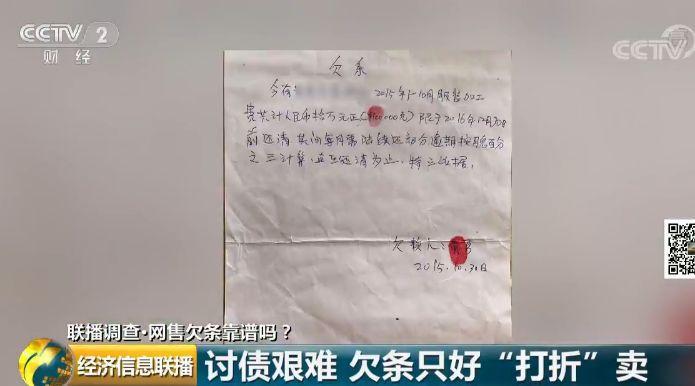 CCTV 2
财经
CCTV
欠条
今有
2015年5-10月服装加工
费共计人民币拾万元正(¥100000元)限于2016年12月30日
前还清 其间每月需陆续还部分逾期按月息百分
之三计算,直至还清为止,特立此据。
欠款人:
2015.10.30日
联播调查·网售欠条靠谱吗?
经济信息联播
讨债艰难 欠条只好“打折”卖